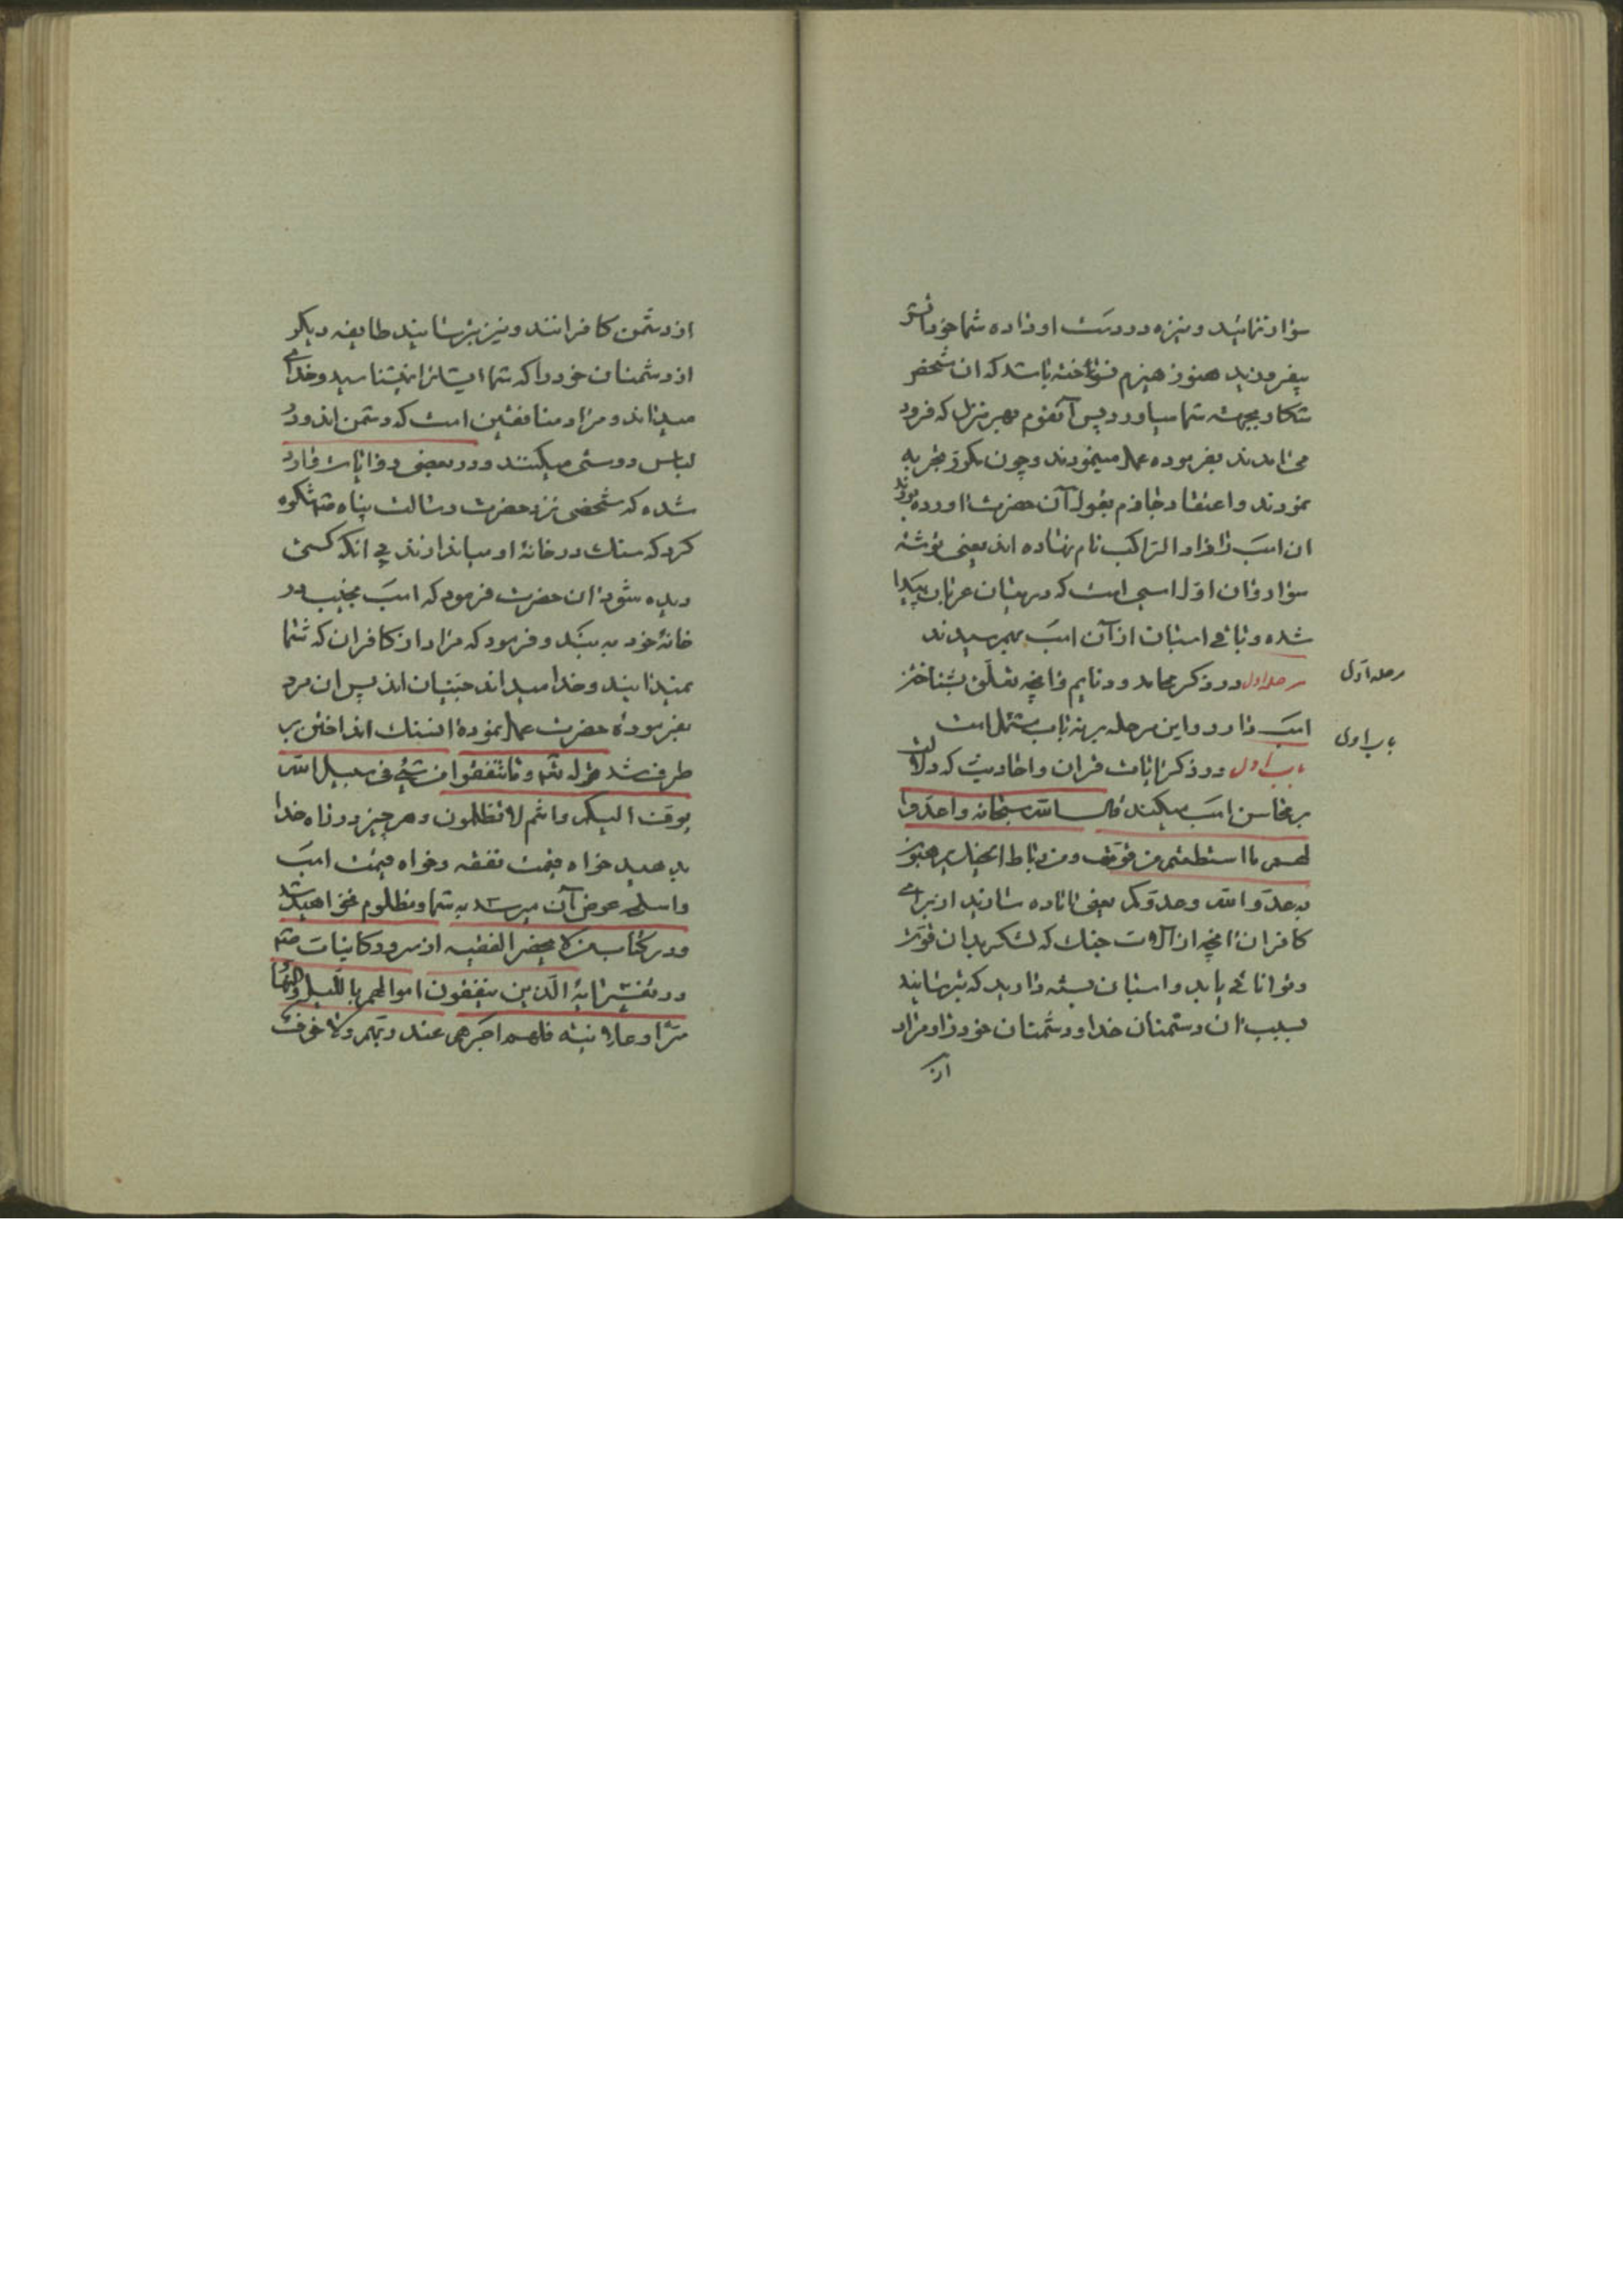 سوار نمائید و نیزه در دست او داده شما خود آتش
بیفروزید هنوز هیزم نسوخته باشد که ان شخص
شکار بجهت شما بیاورد پس آنقوم بهر منزل که فرود
می امدند بفرموده عمل مینمودند و چون مکرر تجربه
نمودند و اعتقاد جازم بقول آن حضرت اوردند
ان اسب را زاد الراکب نام نهاده اند یعنی توشهٔ
سوار و ان اول اسبی است که در میان عربان پیدا
شده و باقی اسبان از آن اسب بهم رسیدند
مرحله اولی
مرحله اول در ذکر محامد و ذمایم و انچه تعلق بشناختن
اسب دارد و این مرحله بر نه باب مشتمل است
باب اولی
باب اول در ذکر ایات قران و احادیث که دلالت
بر محاسن اسب میکند قال الله سبحانه و اعدوا
لهم ما استطعتم من قوة و من رباط الخیل ترهبون
به عدو الله و عدوکم یعنی اماده سازید از برای
کافران انچه از آلات جنك که لشکر بدان قوت
و توانائی یابد و اسبان بسته دارید که بترسانید
بسبب ان دشمنان خدا و دشمنان خود را و مراد
از
از دشمن کافرانند و نیز بترسانید طایفه دیگر
از دشمنان خود را که شما ایشانرا نمیشناسید و خدای
میداند و مراد منافقین است که دشمن اند و در
لباس دوستی میکنند و در بعضی روایات وارد
شده که شخصی نزد حضرت رسالت پناه شکوه
کرد که سنك در خانهٔ او میاندازند بی انکه کسی
دیده شود ان حضرت فرمود که اسب نجیب در
خانهٔ خود به بند و فرمود که مراد از کافران که شما
نمیدانید و خدا میداند جنیان اند پس ان مرد
بفرموده حضرت عمل نموده ان سنك انداختن بر
طرف شد قوله تع و ما تنفقوا من شئ فی سبیل الله
یوف الیکم و انتم لا تظلمون و هر چیز در راه خدا
بدهید خواه قیمت نفقه و خواه قیمت اسب
و اسلحه عوض آن میرسد به شما و مظلوم نخواهید شد
و در کتاب من لا یحضر الفقیه از سرور کاینات
در تفسیر ایهٔ الذین ینفقون اموالهم باللیل و النهار
سرا و علانیة فلهم اجرهم عند ربهم و لا خوف